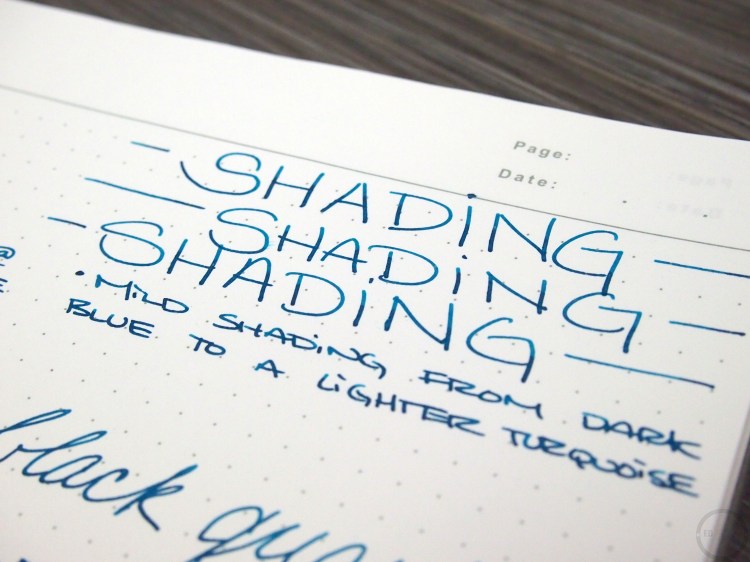 Page:
Date:
- SHADiNG -
- SHADiNG -
- SHADiNG -
@
E
• MiLD SHADiNG FROM DARK
BLUE TO A LiGHTER TURQUOiSE
black